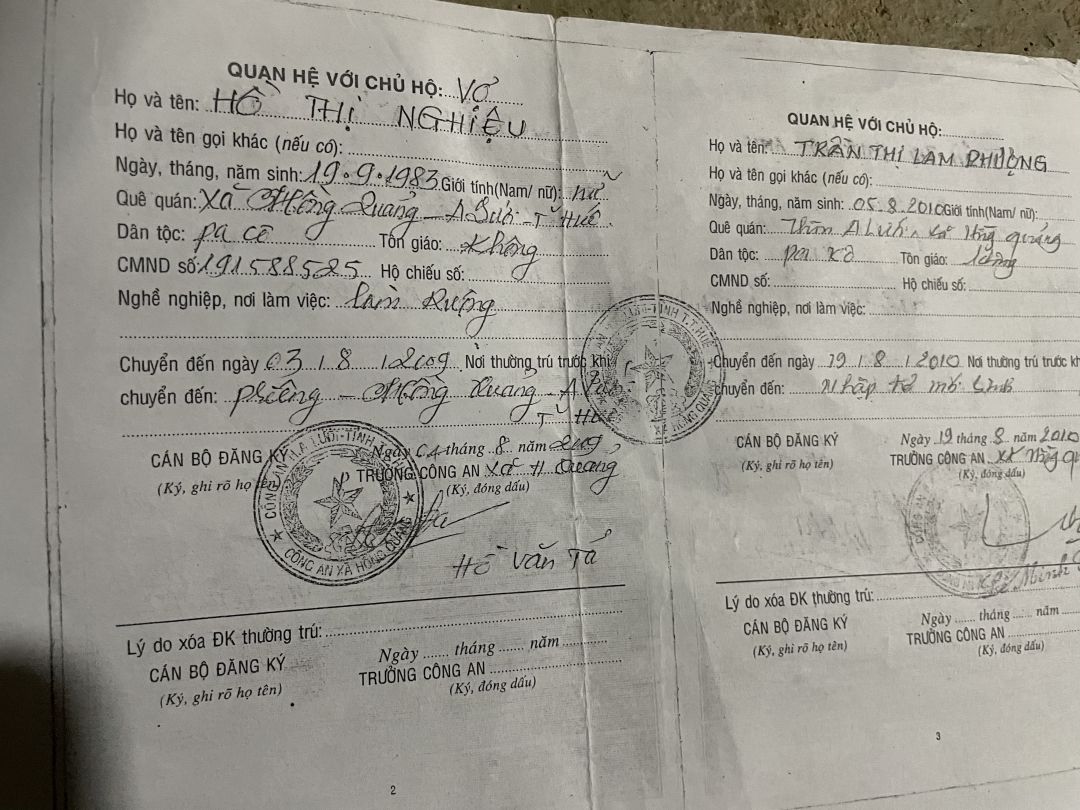 QUAN HỆ VỚI CHỦ HỘ: Vợ
Họ và tên: HỒ THỊ NGHIỆU
Họ và tên gọi khác (nếu có):
Ngày, tháng, năm sinh: 19.9.1983 Giới tính(Nam/ nữ): nữ
Quê quán: Xã Hồng Quảng - A Lưới - T Huế
Dân tộc: pa cô Tôn giáo: Không
CMND số: 191588525 Hộ chiếu số:
Nghề nghiệp, nơi làm việc: Làm Ruộng
Chuyển đến ngày 03 / 8 / 2009 Nơi thường trú trước khi
chuyển đến: - Hồng Quảng - A
T Huế
CÁN BỘ ĐĂNG KÝ
(Ký, ghi rõ họ tên)
Ngày tháng 8 năm 2009
TRƯỞNG CÔNG AN Xã H Quảng
(Ký, đóng dấu)
CÔNG AN H.A LƯỚI-TỈNH T.
CÔNG AN XÃ HỒNG QUẢNG
Hồ Văn Tả
Lý do xóa ĐK thường trú:
CÁN BỘ ĐĂNG KÝ
(Ký, ghi rõ họ tên)
Ngày ....... tháng ....... năm
TRƯỞNG CÔNG AN
(Ký, đóng dấu)
2
A LƯỚI-TỈNH T.T.HUẾ
XÃ HỒNG QUẢNG
QUAN HỆ VỚI CHỦ HỘ:
Họ và tên: TRẦN THỊ LAM PHƯỢNG
Họ và tên gọi khác (nếu có):
Ngày, tháng, năm sinh: 05.8.2010 Giới tính(Nam/ nữ):
Quê quán: Thôn A Lưới, xã Hồng quảng
Dân tộc: pa kô Tôn giáo: không
CMND số: Hộ chiếu số:
Nghề nghiệp, nơi làm việc:
Chuyển đến ngày 19 / 8 / 2010 Nơi thường trú trước kh
chuyển đến: Nhập từ mới sinh
CÁN BỘ ĐĂNG KÝ
(Ký, ghi rõ họ tên)
Ngày 19 tháng 8 năm 2010
TRƯỞNG CÔNG AN xã Hồng qu
(Ký, đóng dấu)
Minh
Lý do xóa ĐK thường trú:
CÁN BỘ ĐĂNG KÝ
(Ký, ghi rõ họ tên)
Ngày ....... tháng ....... năm
TRƯỞNG CÔNG AN
(Ký, đóng dấu)
3